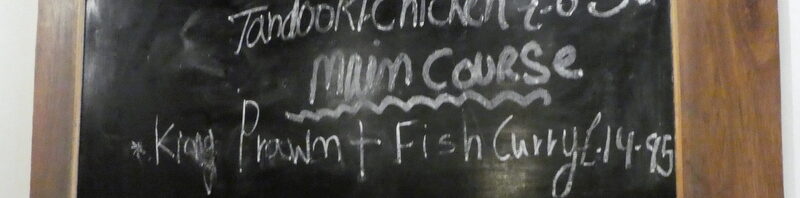 Tandoori Chicken
Main Course
* King Prawn + Fish Curry £.14.95